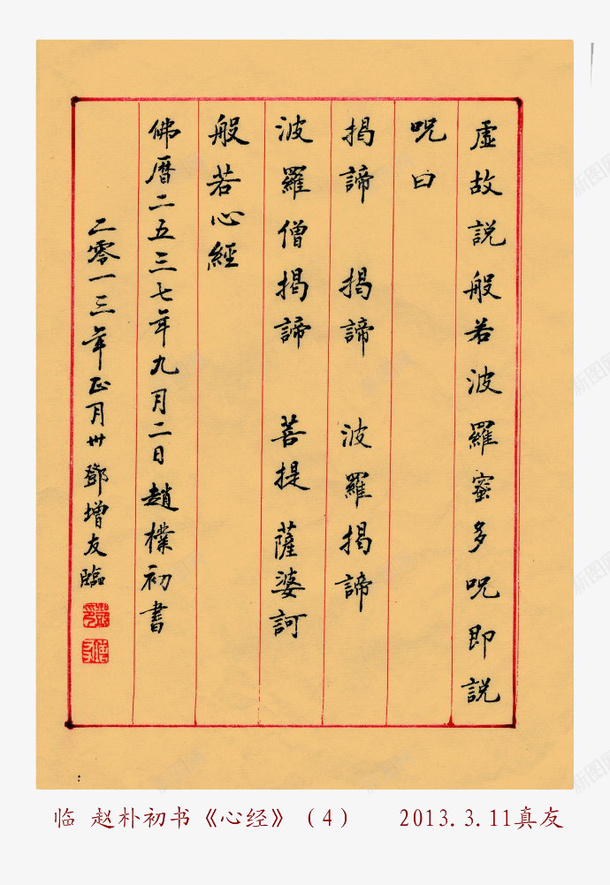 虛故説般若波羅蜜多呪即説
呪曰
揭諦 揭諦 波羅揭諦
波羅僧揭諦 菩提 薩婆訶
般若心經
佛曆二五三七年九月二日趙樸初書
二零一三年正月卅鄧增友臨
临 赵朴初书《心经》（4） 2013.3.11真友